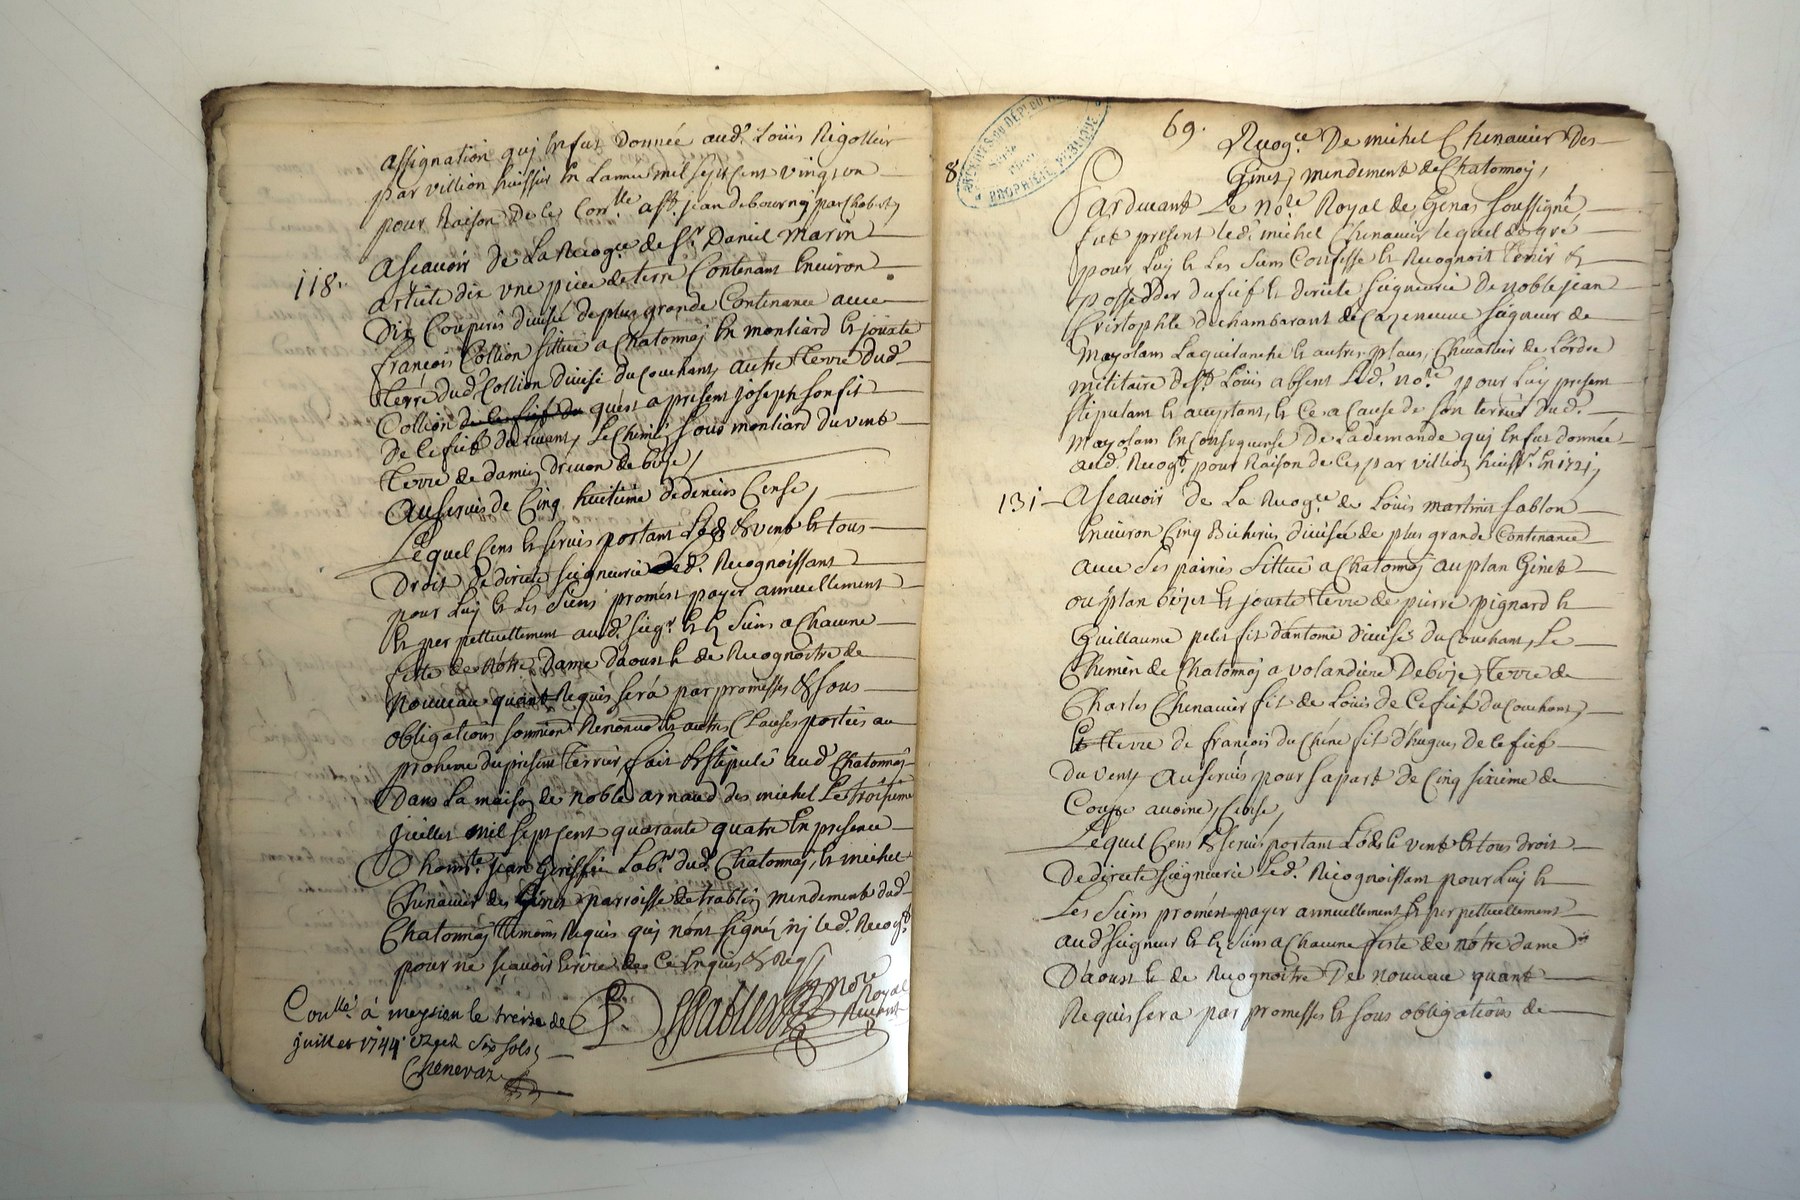 assignation quj en fut donnée aud.t Louis Rigollier
par villion huissier en Lannee mil sept cent vingt un
pour Raison de ce, Con.lle a St jean de bournay par Chabert,
118. Ascavoir de La Recog.ce de Sr. Daniel Marin
article dix vne piece de terre Contenant Environ
Dix Couperés divisé de plus grande Contenance auec
françois Collion Sittué a Chatonnaj En montiard Et jouxte
terre dud. Collion divisé du Couchant, autre terre dud.
Collion quest a present joseph son fit
de Ce fief du Levant, Le Chemin Sous montiard du vent
terre de damien drevon de bize,
Au servis de Cinq huitieme de deniers Cense,
Lequel Cens Et servis portant Lods & vent Et tous
Droit de directe seigneurie Led. Recognoissant
pour Luy Et Les Siens promest payer annuellement
Et perpettuellement aud. Seigr. Et Es Siens a Chacune
feste de Nôtre Dame D'aoust & de Recognoitre de
Nouveau quant Requis sera par promesses & sous
obligations soumions Renonces Et autres Clauses portées au
proheme du present terrier fait & stipulé aud. Chatonnay
Dans La maison de noble arnaud des michel Le troisieme
juillet mil sept cent quarante quatre En presence
D'honn.te jean Labr. dud. Chatonnaj, & michel
Chenavier des Ginet parroisse de trablin mendement dud.
Chatonnaj temoins Requis quj n'ont signé nj Led. Recog.t
pour ne sçavoir Ecrire de Ce Enquis & Req
Con.lle à meysieu le treize de
juillet 1744. six sols,
Chenevaz
Nore
Royal
Recevant
8
ARCHIVES DU DÉPT DU
PROPRIÉTÉ PUBLIQUE
69.
Recog.ce De michel Chenavier Des
Ginet, mendement de Chatonnay,
Pardevant Le No.re Royal de Genas soussigné,
fut present led. michel Chenavier lequel de gré
pour Luy & Les Siens Confesse & Recognoit tenir &
posseder du fief & directe Seigneurie de noble jean
Cristophle de chambarant de Cazeneuve Seigneur de
Mayolans Laquilanche & autres places, Chevallier de L'ordre
militaire de St. Louis absent Led. No.re pour Luy present
stipulant & acceptant, & Ce a Cause de son terrier dud.
Mayolans En Consequense De La demande quj En fut donnée
aud. Recog.t pour Raison de Ce, par villion huiss.r En 1721,
131 Ascavoir de La Recog.ce de Louis martinis sablon
Environ Cinq Bicherées divisée de plus grande Contenance
auec Ses pariers Sittué a Chatonnaj au plan Ginet
ou plan Et jouxte terre de pierre pignard &
Guillaume pelet fit d'antoine divisés du Couchant, Le
Chemin de Chatonnaj a volandiere De bize, terre de
Charles Chenavier fit de Louis de Ce fief du Couchant,
terre de francois du Chene fit d'hugues de Ce fief
du vent, Au servis pour sa part de Cinq sixieme de
Coupe avoine, Cense,
Lequel Cens & servis portant Lods & vent & tous droit
De directe Seigneurie Led. Recognoissant pour Luy &
Les Siens promest payer annuellement & perpettuellement
aud. Seigneur & Es Siens a Chacune feste de nôtre dame
D'aoust & de Recognoitre De nouveau quant
Requis sera par promesses & sous obligations de